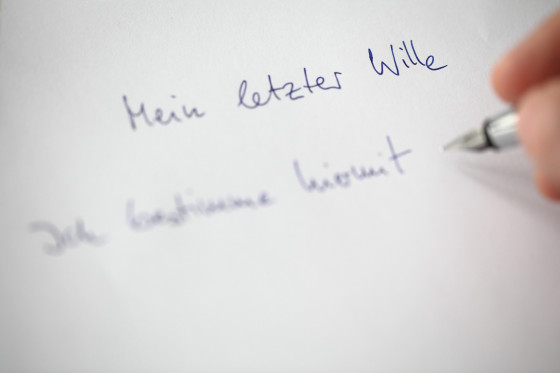 Mein letzter Wille
Ich bestimme hiermit